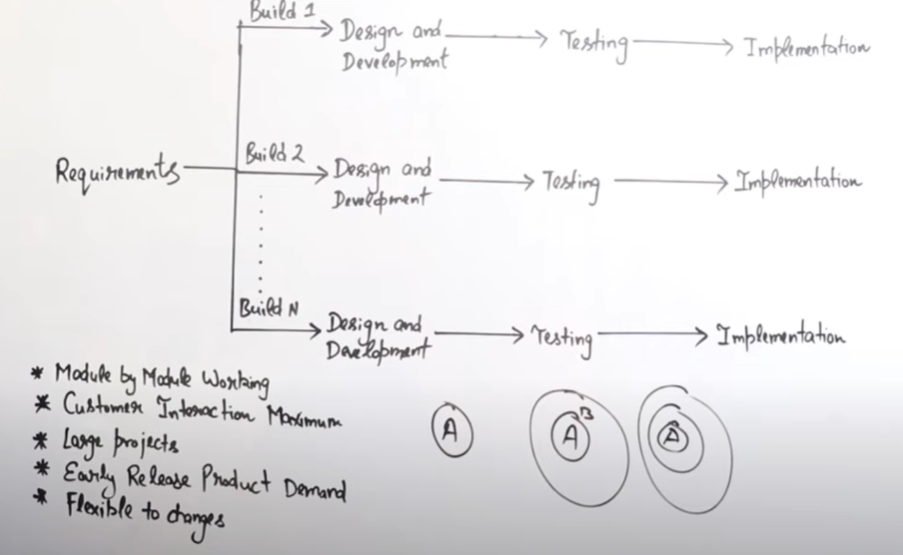 Build 1
Design and
Development
Testing
Implementation
Requirements
Build 2
Design and
Development
Testing
Implementation
Build N
Design and
Development
Testing
Implementation
* Module by Module Working
* Customer Interaction Maximum
* Large projects
* Early Release Product Demand
* Flexible to changes
A
A
B
A